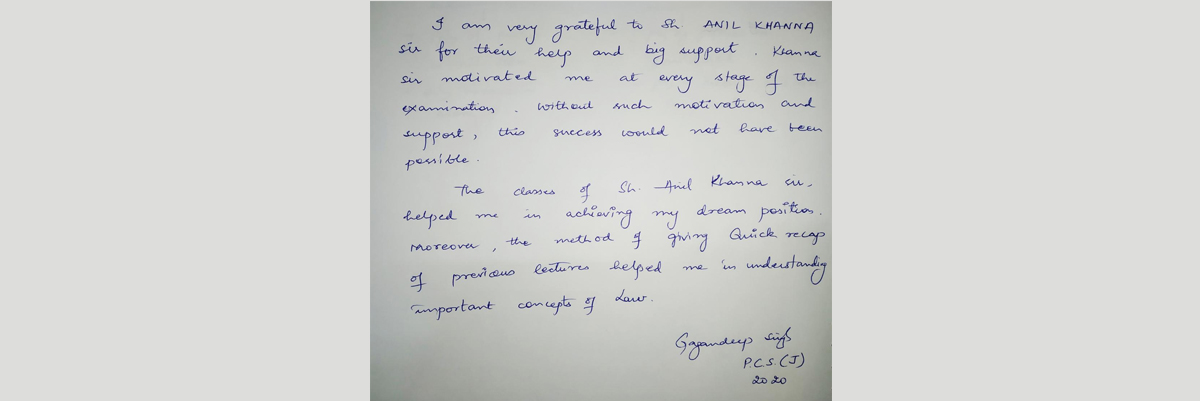 I am very grateful to Sh. ANIL KHANNA
sir for their help and big support. Khanna
sir motivated me at every stage of the
examination. Without such motivation and
support, this success would not have been
possible.
The classes of Sh. Anil Khanna sir.
helped me in achieving my dream position.
Moreover, the method of giving Quick recap
of previous lectures helped me in understanding
important concepts of Law.
Gagandeep Singh
P.C.S.(J)
2020